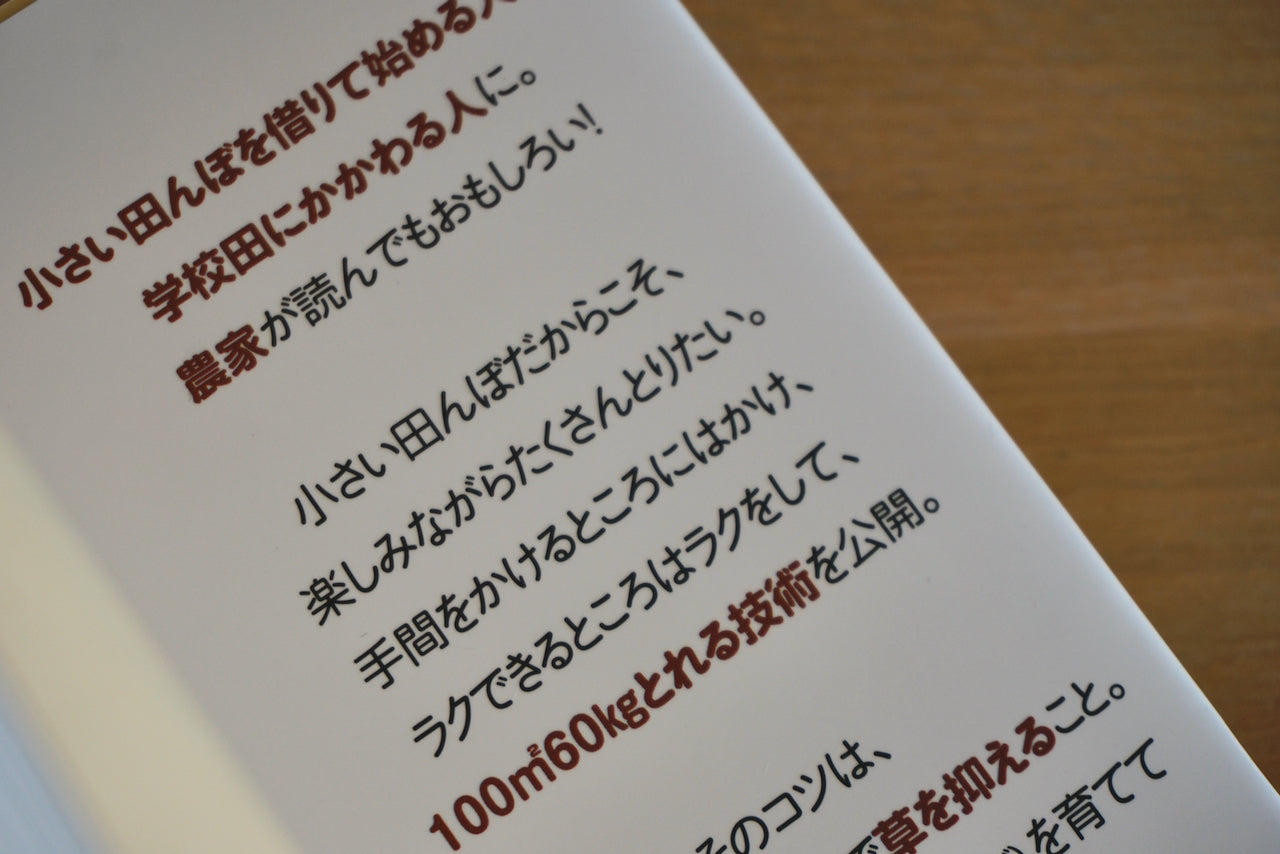 小さい田んぼを借りて始める人
学校田にかかわる人に。
農家が読んでもおもしろい!
小さい田んぼだからこそ、
楽しみながらたくさんとりたい。
手間をかけるところにはかけ、
ラクできるところはラクをして、
100㎡60kgとれる技術を公開。
そのコツは、
で草を抑えること。
を育てて